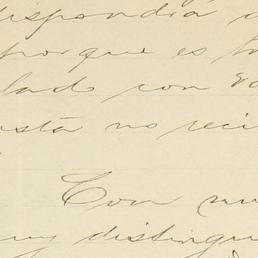 dispondrá
porque es
lado con
está no reci
Con mu
muy distingu